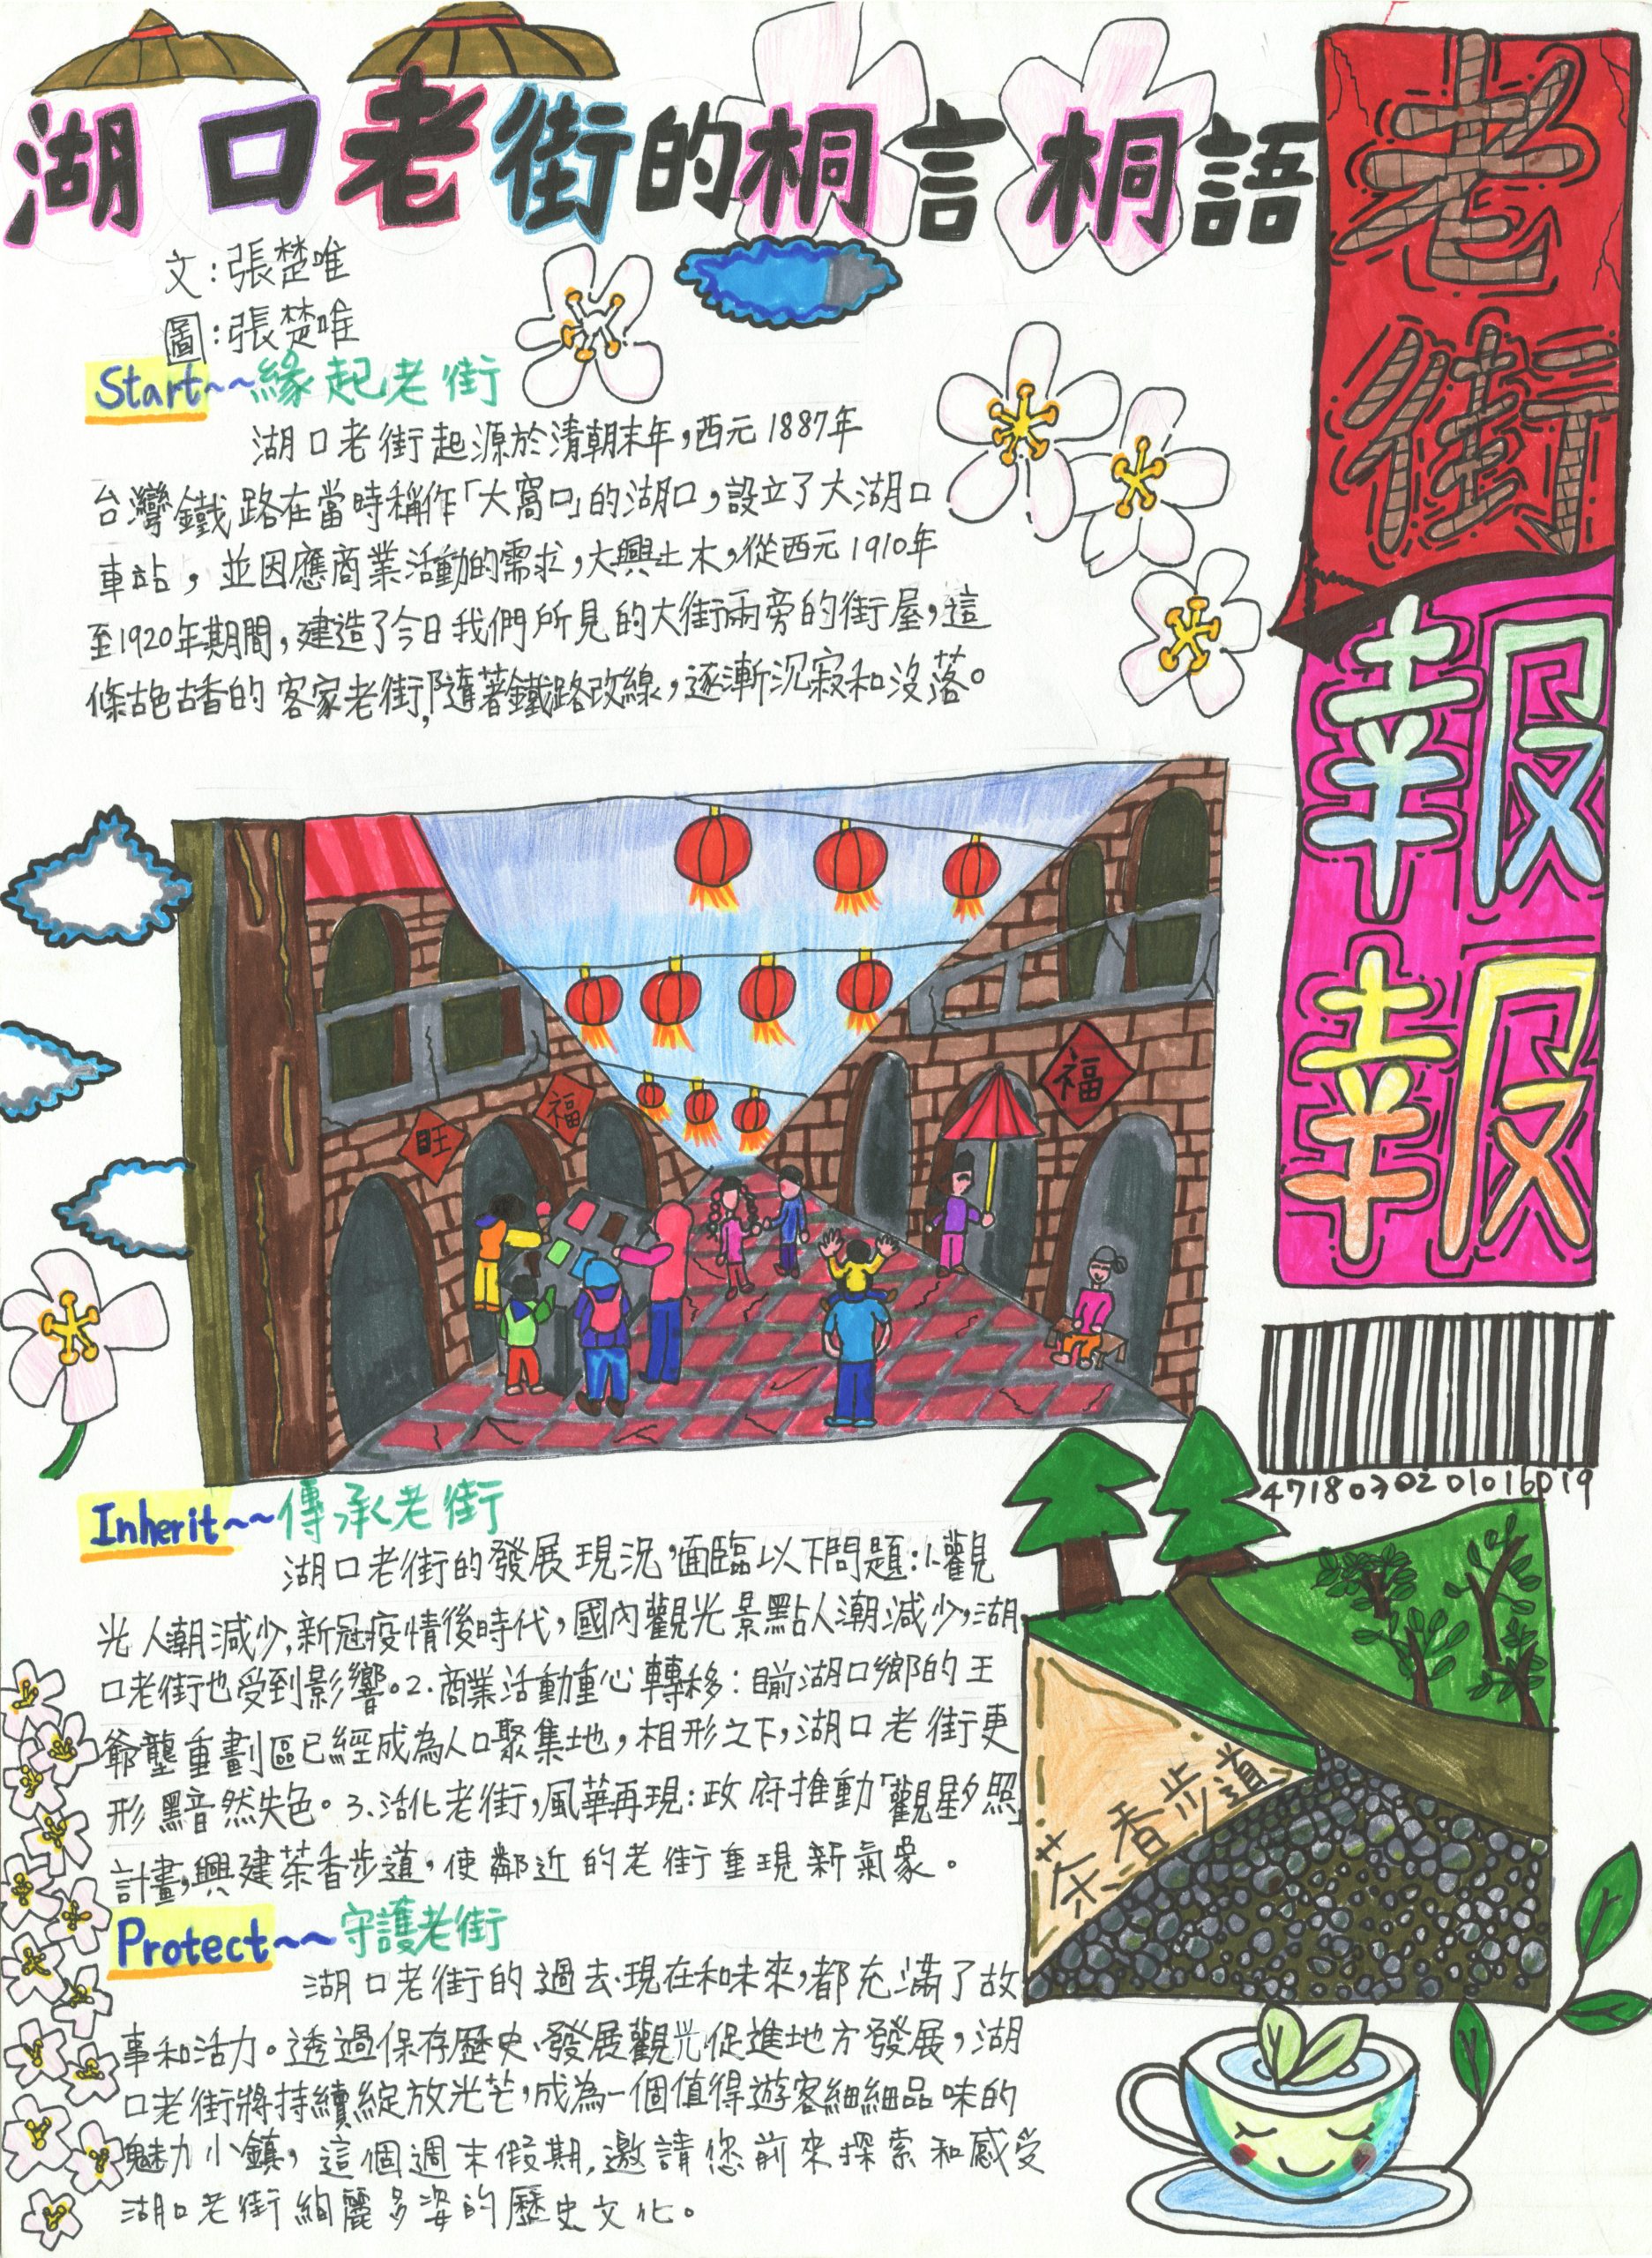 湖口老街的桐言桐語
老街
報報
文:張楚唯
圖:張楚唯
Start~~緣起老街
湖口老街起源於清朝末年,西元1887年
台灣鐵路在當時稱作「大窩口」的湖口,設立了大湖口
車站,並因應商業活動的需求,大興土木,從西元1910年
至1920年期間,建造了今日我們所見的大街兩旁的街屋,這
條古色古香的客家老街,隨著鐵路改線,逐漸沉寂和沒落。
旺
福
福
4718070201016019
Inherit~~傳承老街
湖口老街的發展現況,面臨以下問題:1.觀
光人潮減少,新冠疫情後時代,國內觀光景點人潮減少,湖
口老街也受到影響。2.商業活動重心轉移:目前湖口鄉的王
爺壟重劃區已經成為人口聚集地,相形之下,湖口老街更
形黯然失色。3.活化老街,風華再現:政府推動「觀星夕照」
計畫,興建茶香步道,使鄰近的老街重現新氣象。
茶香步道
Protect~~守護老街
湖口老街的過去、現在和未來,都充滿了故
事和活力。透過保存歷史、發展觀光促進地方發展,湖
口老街將持續綻放光芒,成為一個值得遊客細細品味的
魅力小鎮,這個週末假期,邀請您前來探索和感受
湖口老街絢麗多姿的歷史文化。